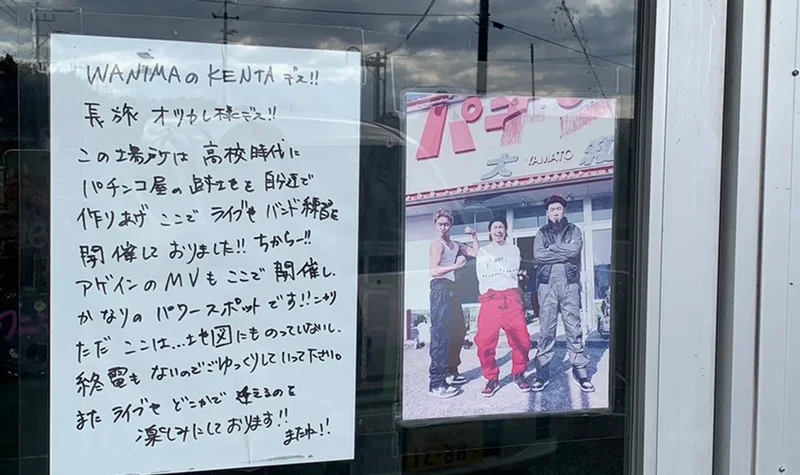 WANIMAのKENTAデス!!
長旅 オツカレ様デス!!
この場所は 高校時代に
パチンコ屋の跡土セを 自分達で
作りあげ ここで ライブや バンド練習を
開催して おりました!! ちからー!!
アゲインのMVもここで 開催し、
かなりの パワースポット です!!ニヤリ
ただ ここは...土セ図にものっていないし、
終電も ないのでごゆっくりしていって下さい。
また ライブや どこかで 逢えるのを
楽しみにしております!!
またね!!
パチ
大 YAMATO